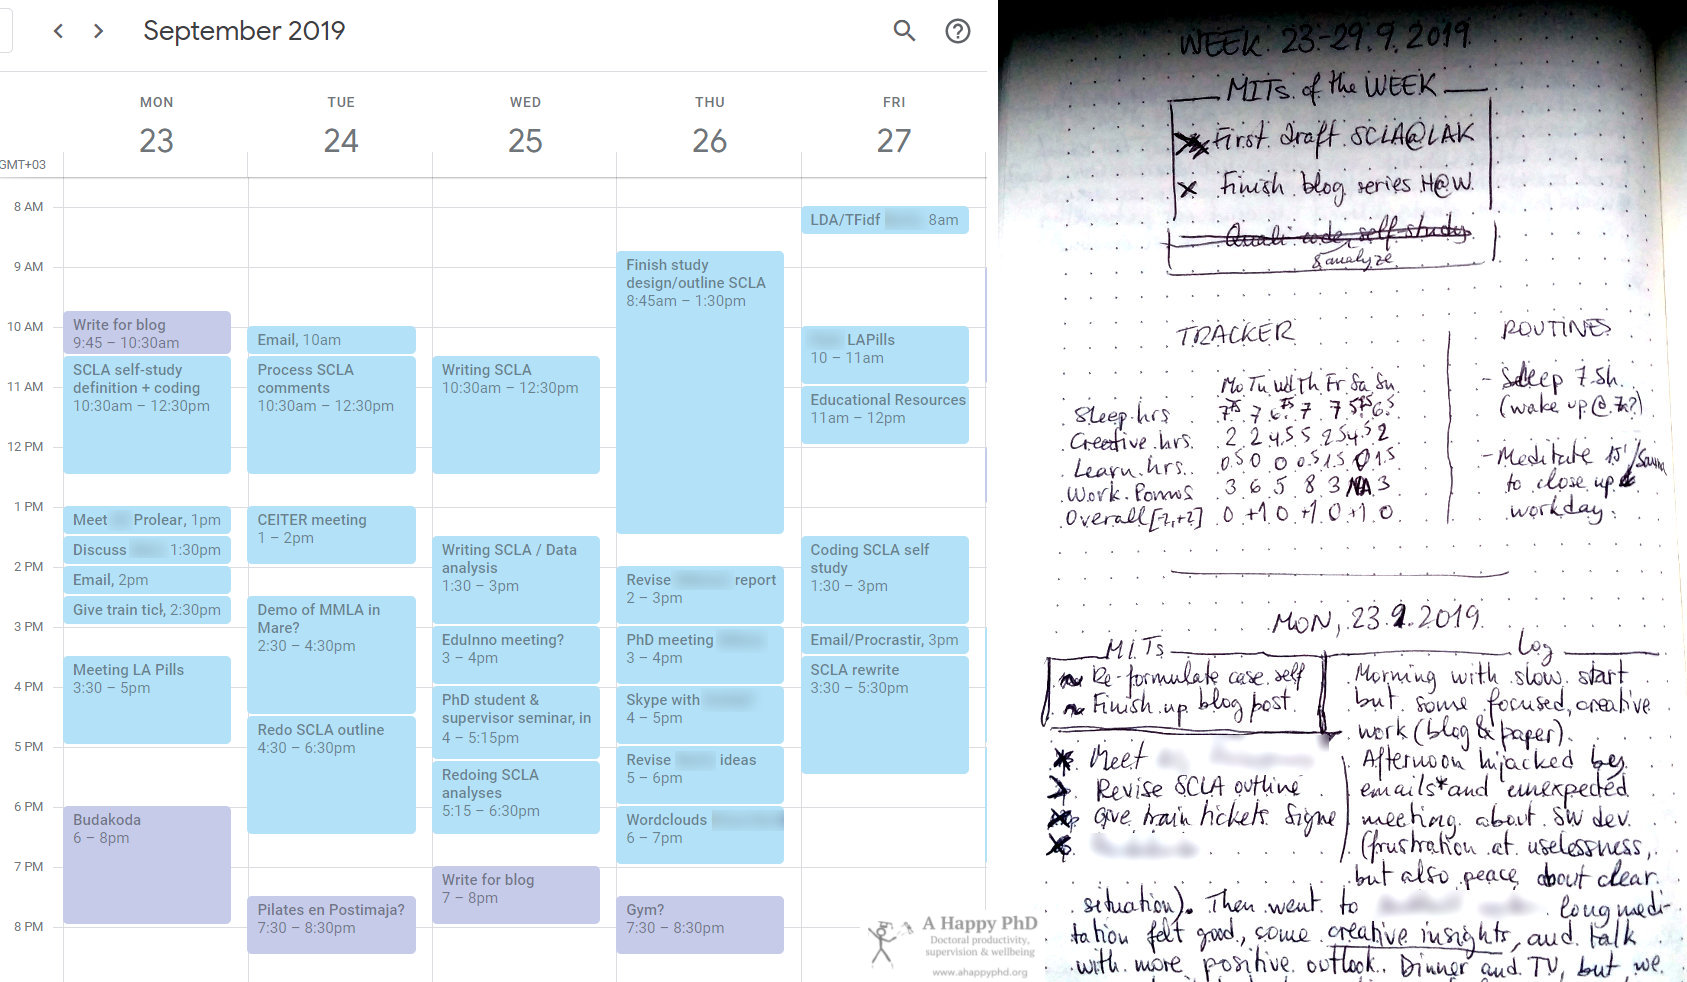 September 2019
MON
TUE
WED
THU
FRI
23
24
25
26
27
GMT+03
8 AM
9 AM
10 AM
11 AM
12 PM
1 PM
2 PM
3 PM
4 PM
5 PM
6 PM
7 PM
8 PM
Write for blog
9:45 – 10:30am
SCLA self-study
definition + coding
10:30am – 12:30pm
Meet Prolear, 1pm
Discuss 1:30pm
Email, 2pm
Give train tick, 2:30pm
Meeting LA Pills
3:30 – 5pm
Budakoda
6 – 8pm
Email, 10am
Process SCLA
comments
10:30am – 12:30pm
CEITER meeting
1 – 2pm
Demo of MMLA in
Mare?
2:30 – 4:30pm
Redo SCLA outline
4:30 – 6:30pm
Pilates en Postimaja?
7:30 – 8:30pm
Writing SCLA
10:30am – 12:30pm
Writing SCLA / Data
analysis
1:30 – 3pm
EduInno meeting?
3 – 4pm
PhD student &
supervisor seminar, in
4 – 5:15pm
Redoing SCLA
analyses
5:15 – 6:30pm
Write for blog
7 – 8pm
Finish study
design/outline SCLA
8:45am – 1:30pm
Revise report
2 – 3pm
PhD meeting
3 – 4pm
Skype with
4 – 5pm
Revise ideas
5 – 6pm
Wordclouds
6 – 7pm
Gym?
7:30 – 8:30pm
LDA/TFidf 8am
LAPills
10 – 11am
Educational Resources
11am – 12pm
Coding SCLA self
study
1:30 – 3pm
Email/Procrastir, 3pm
SCLA rewrite
3:30 – 5:30pm
A Happy PhD
Doctoral productivity,
supervision & wellbeing
www.ahappyphd.org
WEEK 23-29.9.2019
MITs of the WEEK
First draft SCLA@LAK
Finish blog series H@W
Quali code self-study
& analyze
TRACKER
Mo Tu Wd Th Fr Sa Su
Sleep hrs
Creative hrs. 2 2 4.5 5 2.5 4.5 2
Learn hrs. 0.5 0 0 0.5 1.5 0 1.5
Work Pomos 3 6 5 8 3 NA 3
Overall [-2,+2] 0 +1 0 +1 0 +1 0
ROUTINES
- Sleep 7.5h.
(wake up @ 7a?)
- Meditate 15'/Sauna
to close up
workday.
MON, 23.9.2019
MITs
Re-formulate case self
Finish up blog post.
Meet
Revise SCLA outline
give train tickets Signe
Log
Morning with slow start
but some focused, creative
work (blog & paper).
Afternoon hijacked by
emails* and unexpected
meeting about SW dev.
(frustration at uselessness,
but also peace about clear
situation). Then went to long medi-
tation felt good, some creative insights, and talk
with more positive outlook. Dinner and TV, but we